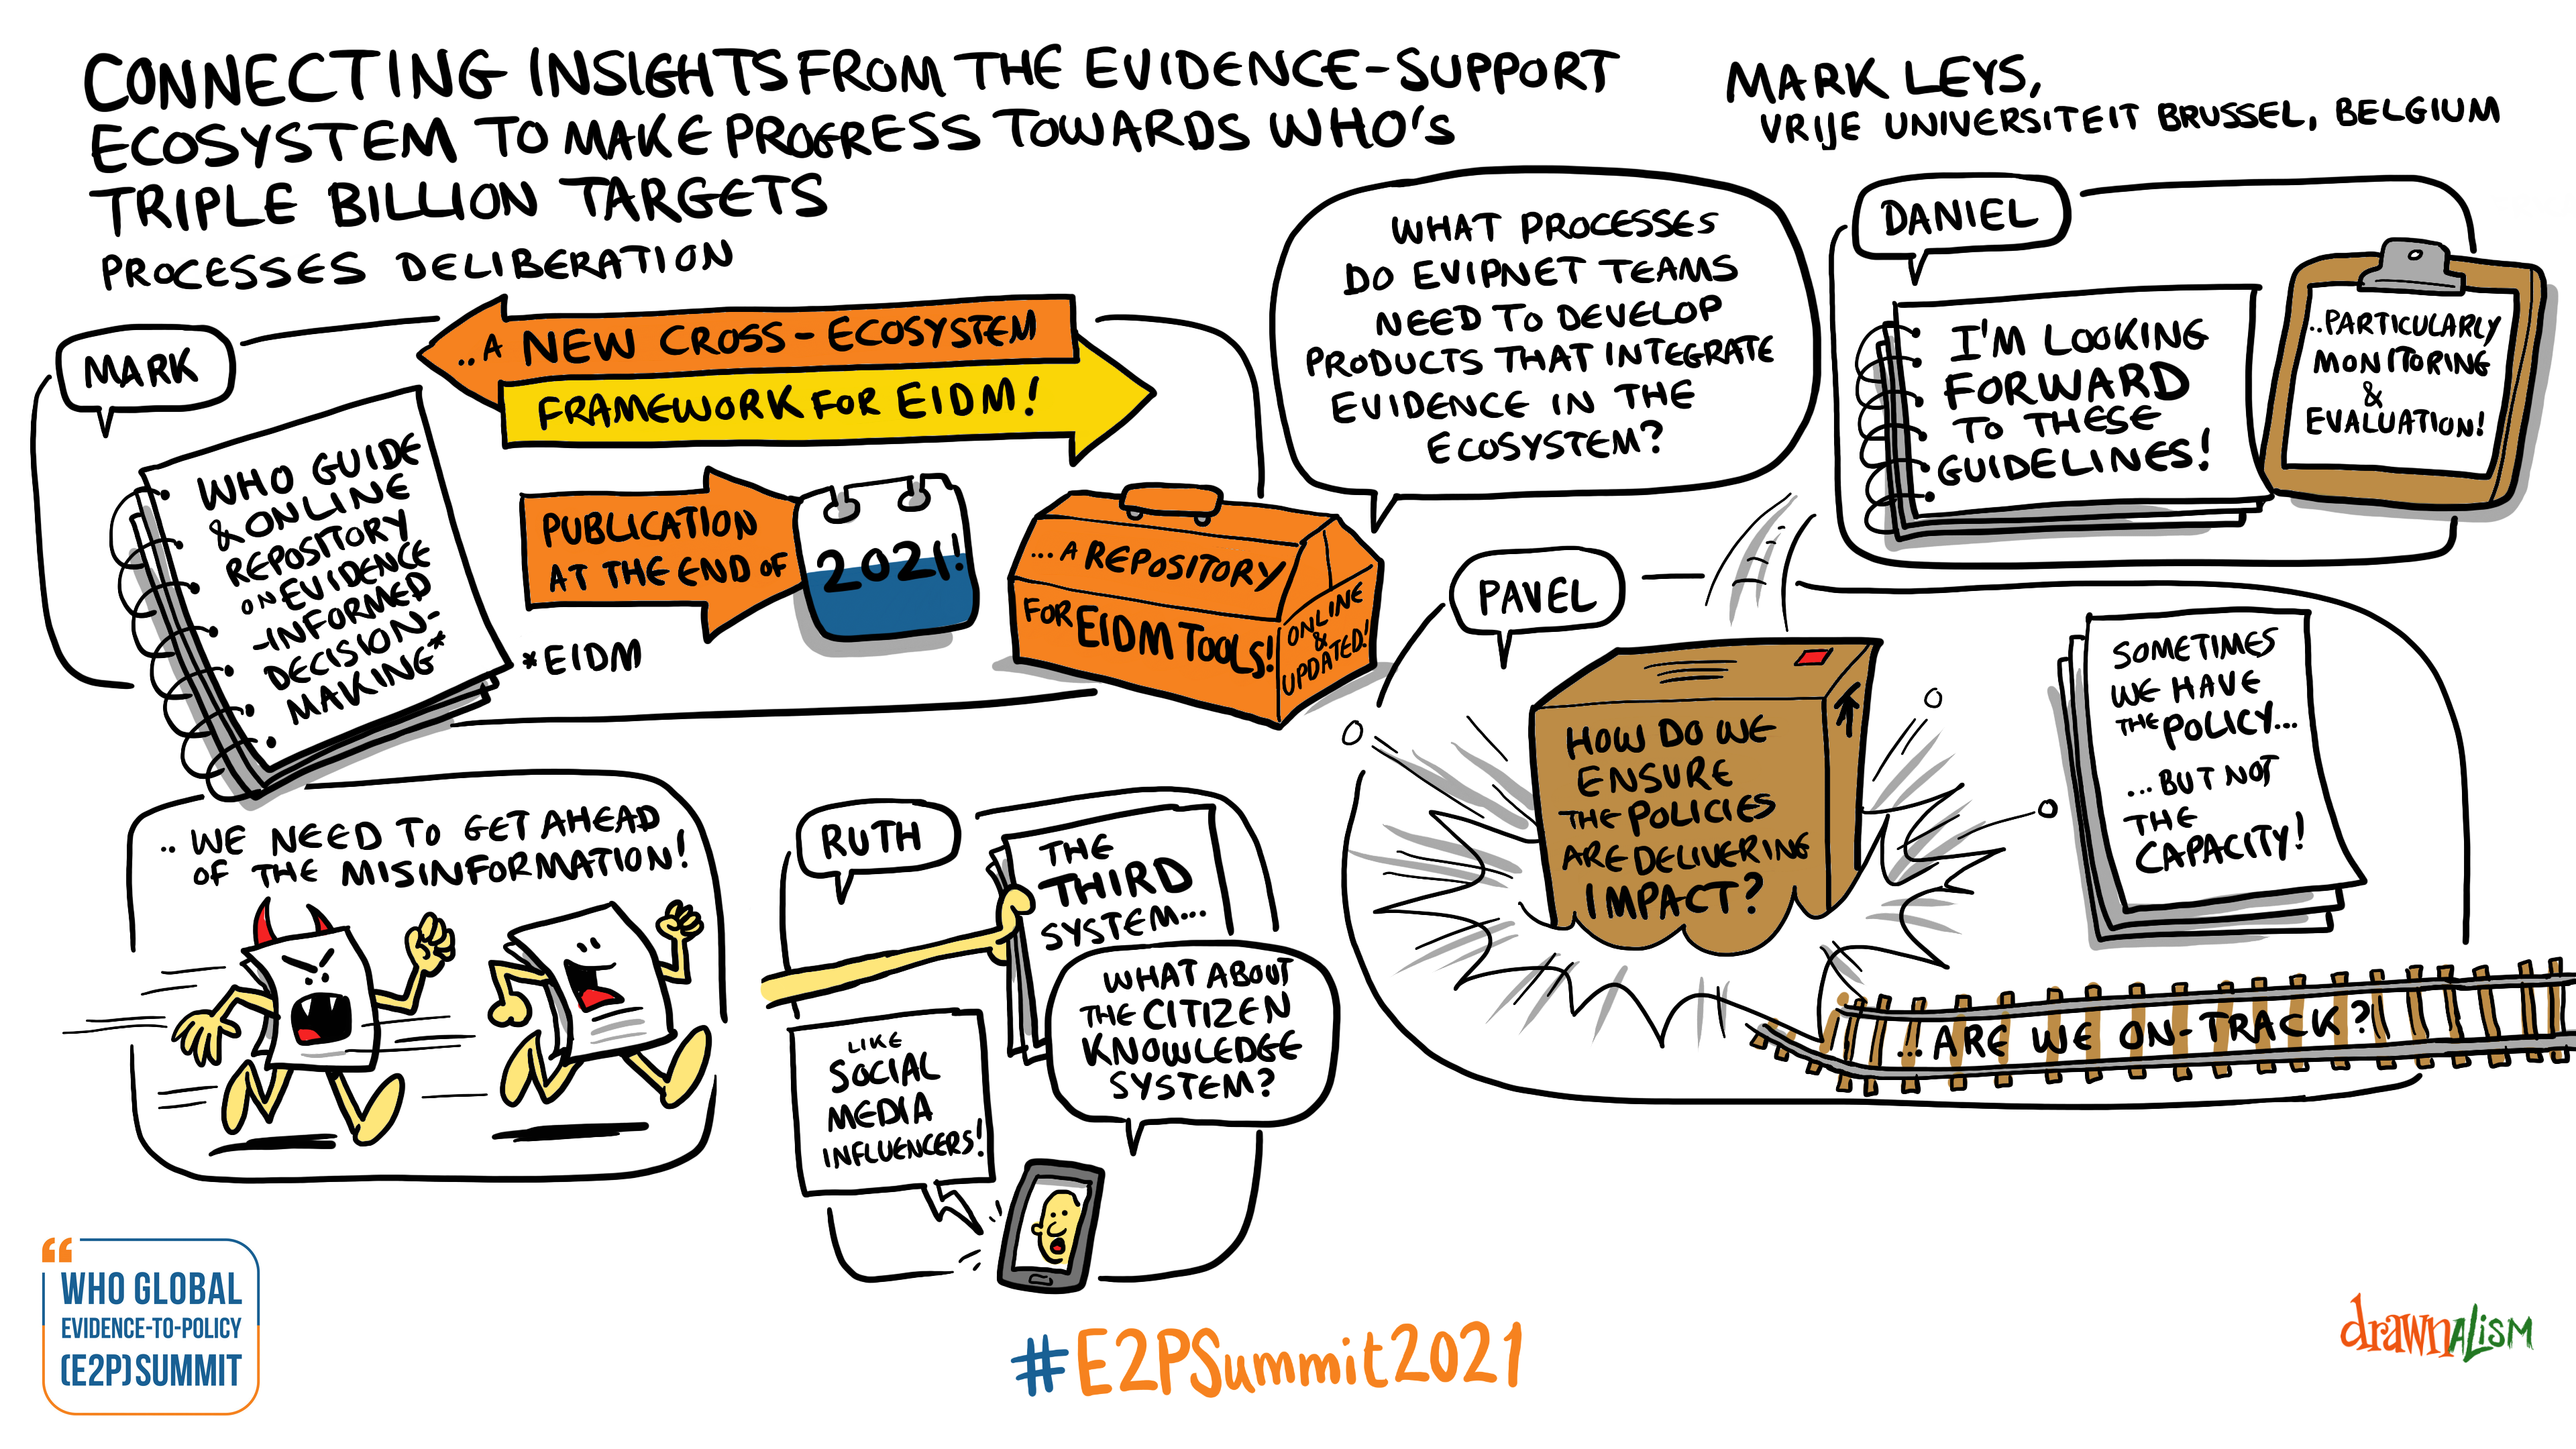 CONNECTING INSIGHTS FROM THE EVIDENCE-SUPPORT
ECOSYSTEM TO MAKE PROGRESS TOWARDS WHO'S
TRIPLE BILLION TARGETS
PROCESSES DELIBERATION
MARK LEYS,
VRIJE UNIVERSITEIT BRUSSEL, BELGIUM
MARK
WHO GUIDE
& ONLINE
REPOSITORY
ON EVIDENCE
-INFORMED
DECISION-
MAKING*
*EIDM
..A NEW CROSS-ECOSYSTEM
FRAMEWORK FOR EIDM!
PUBLICATION
AT THE END OF
2021!
...A REPOSITORY
FOR EIDM TOOLS!
ONLINE
&
UPDATED!
WHAT PROCESSES
DO EVIPNET TEAMS
NEED TO DEVELOP
PRODUCTS THAT INTEGRATE
EVIDENCE IN THE
ECOSYSTEM?
DANIEL
I'M LOOKING
FORWARD
TO THESE
GUIDELINES!
..PARTICULARLY
MONITORING
&
EVALUATION!
PAVEL
HOW DO WE
ENSURE
THE POLICIES
ARE DELIVERING
IMPACT?
SOMETIMES
WE HAVE
THE POLICY...
...BUT NOT
THE
CAPACITY!
...ARE WE ON-TRACK?
..WE NEED TO GET AHEAD
OF THE MISINFORMATION!
RUTH
THE
THIRD
SYSTEM...
WHAT ABOUT
THE CITIZEN
KNOWLEDGE
SYSTEM?
LIKE
SOCIAL
MEDIA
INFLUENCERS!
“
WHO GLOBAL
EVIDENCE-TO-POLICY
(E2P) SUMMIT
#E2PSummit2021
drawnALISM